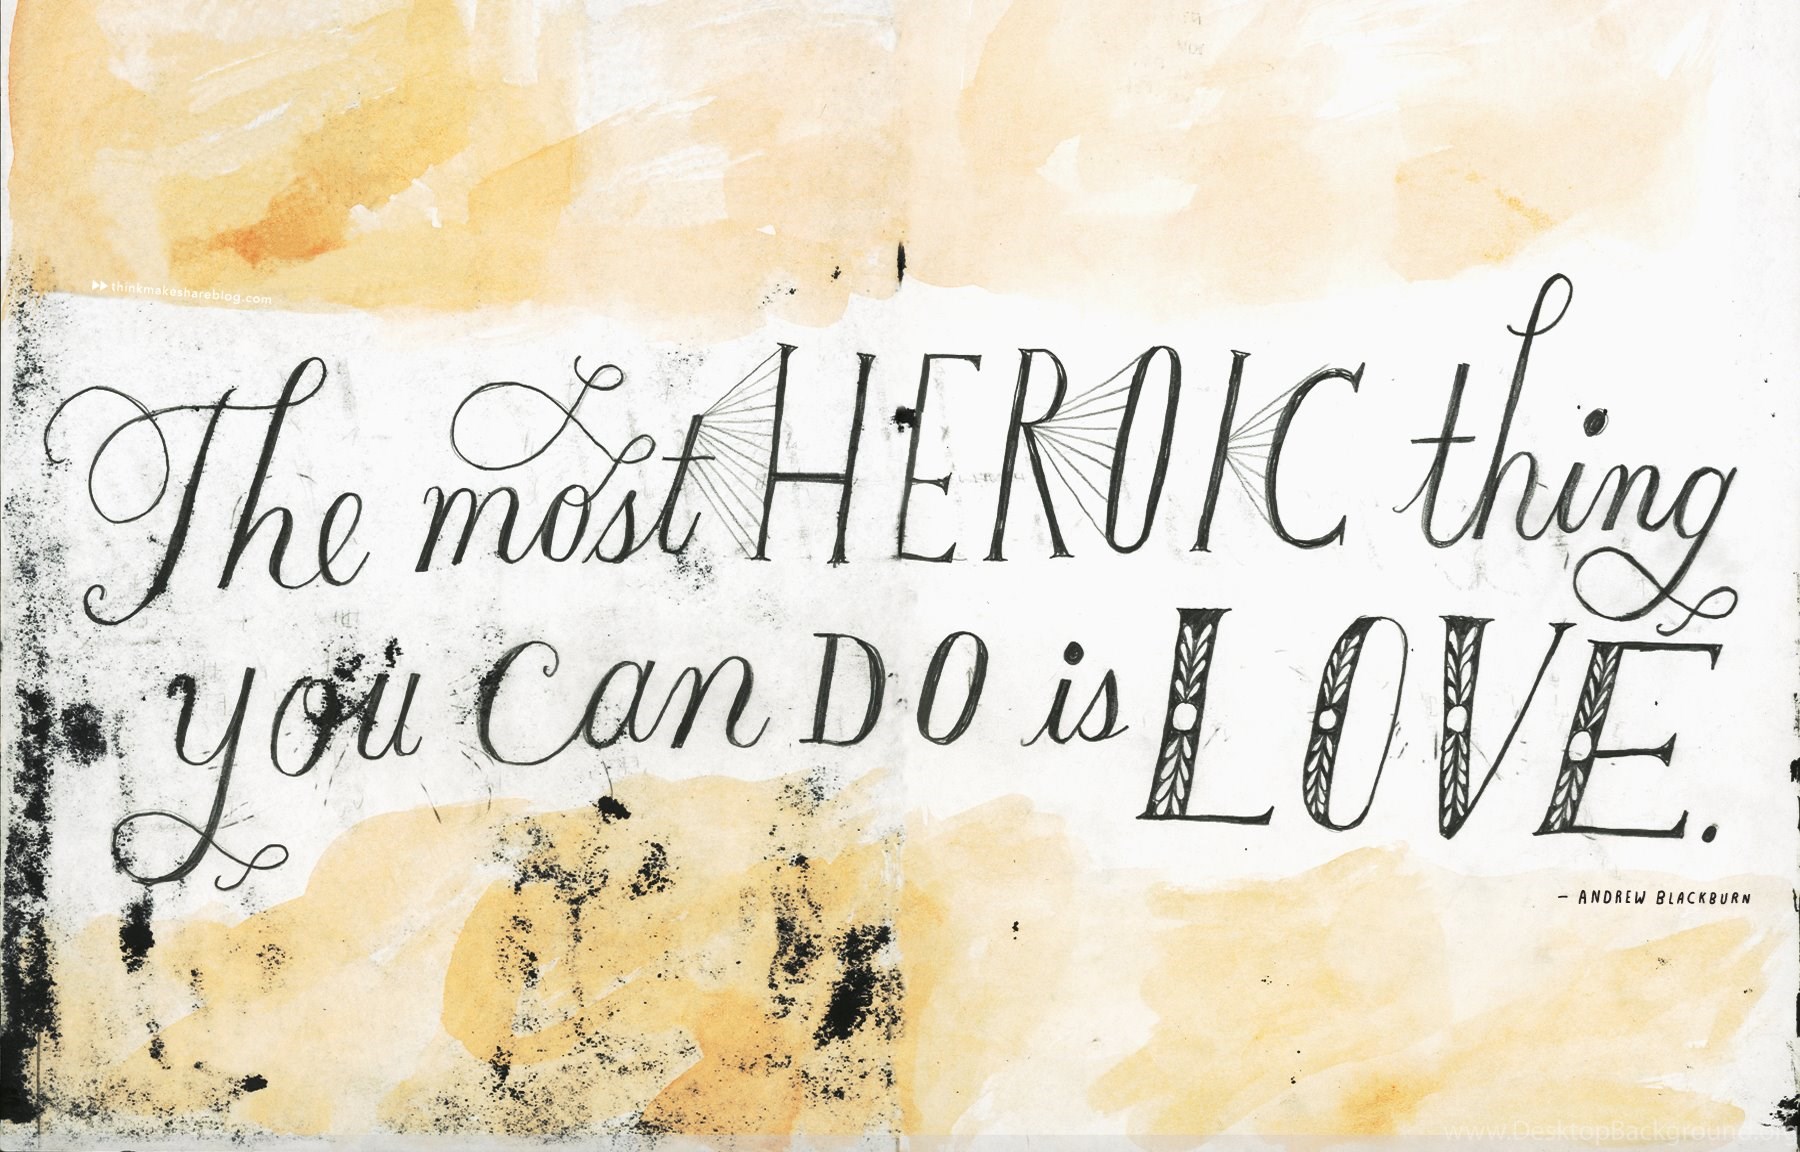 thinkmakeshareblog.com
The most HEROIC thing
you Can DO is LOVE.
- ANDREW BLACKBURN
www.DesktopBackground.org